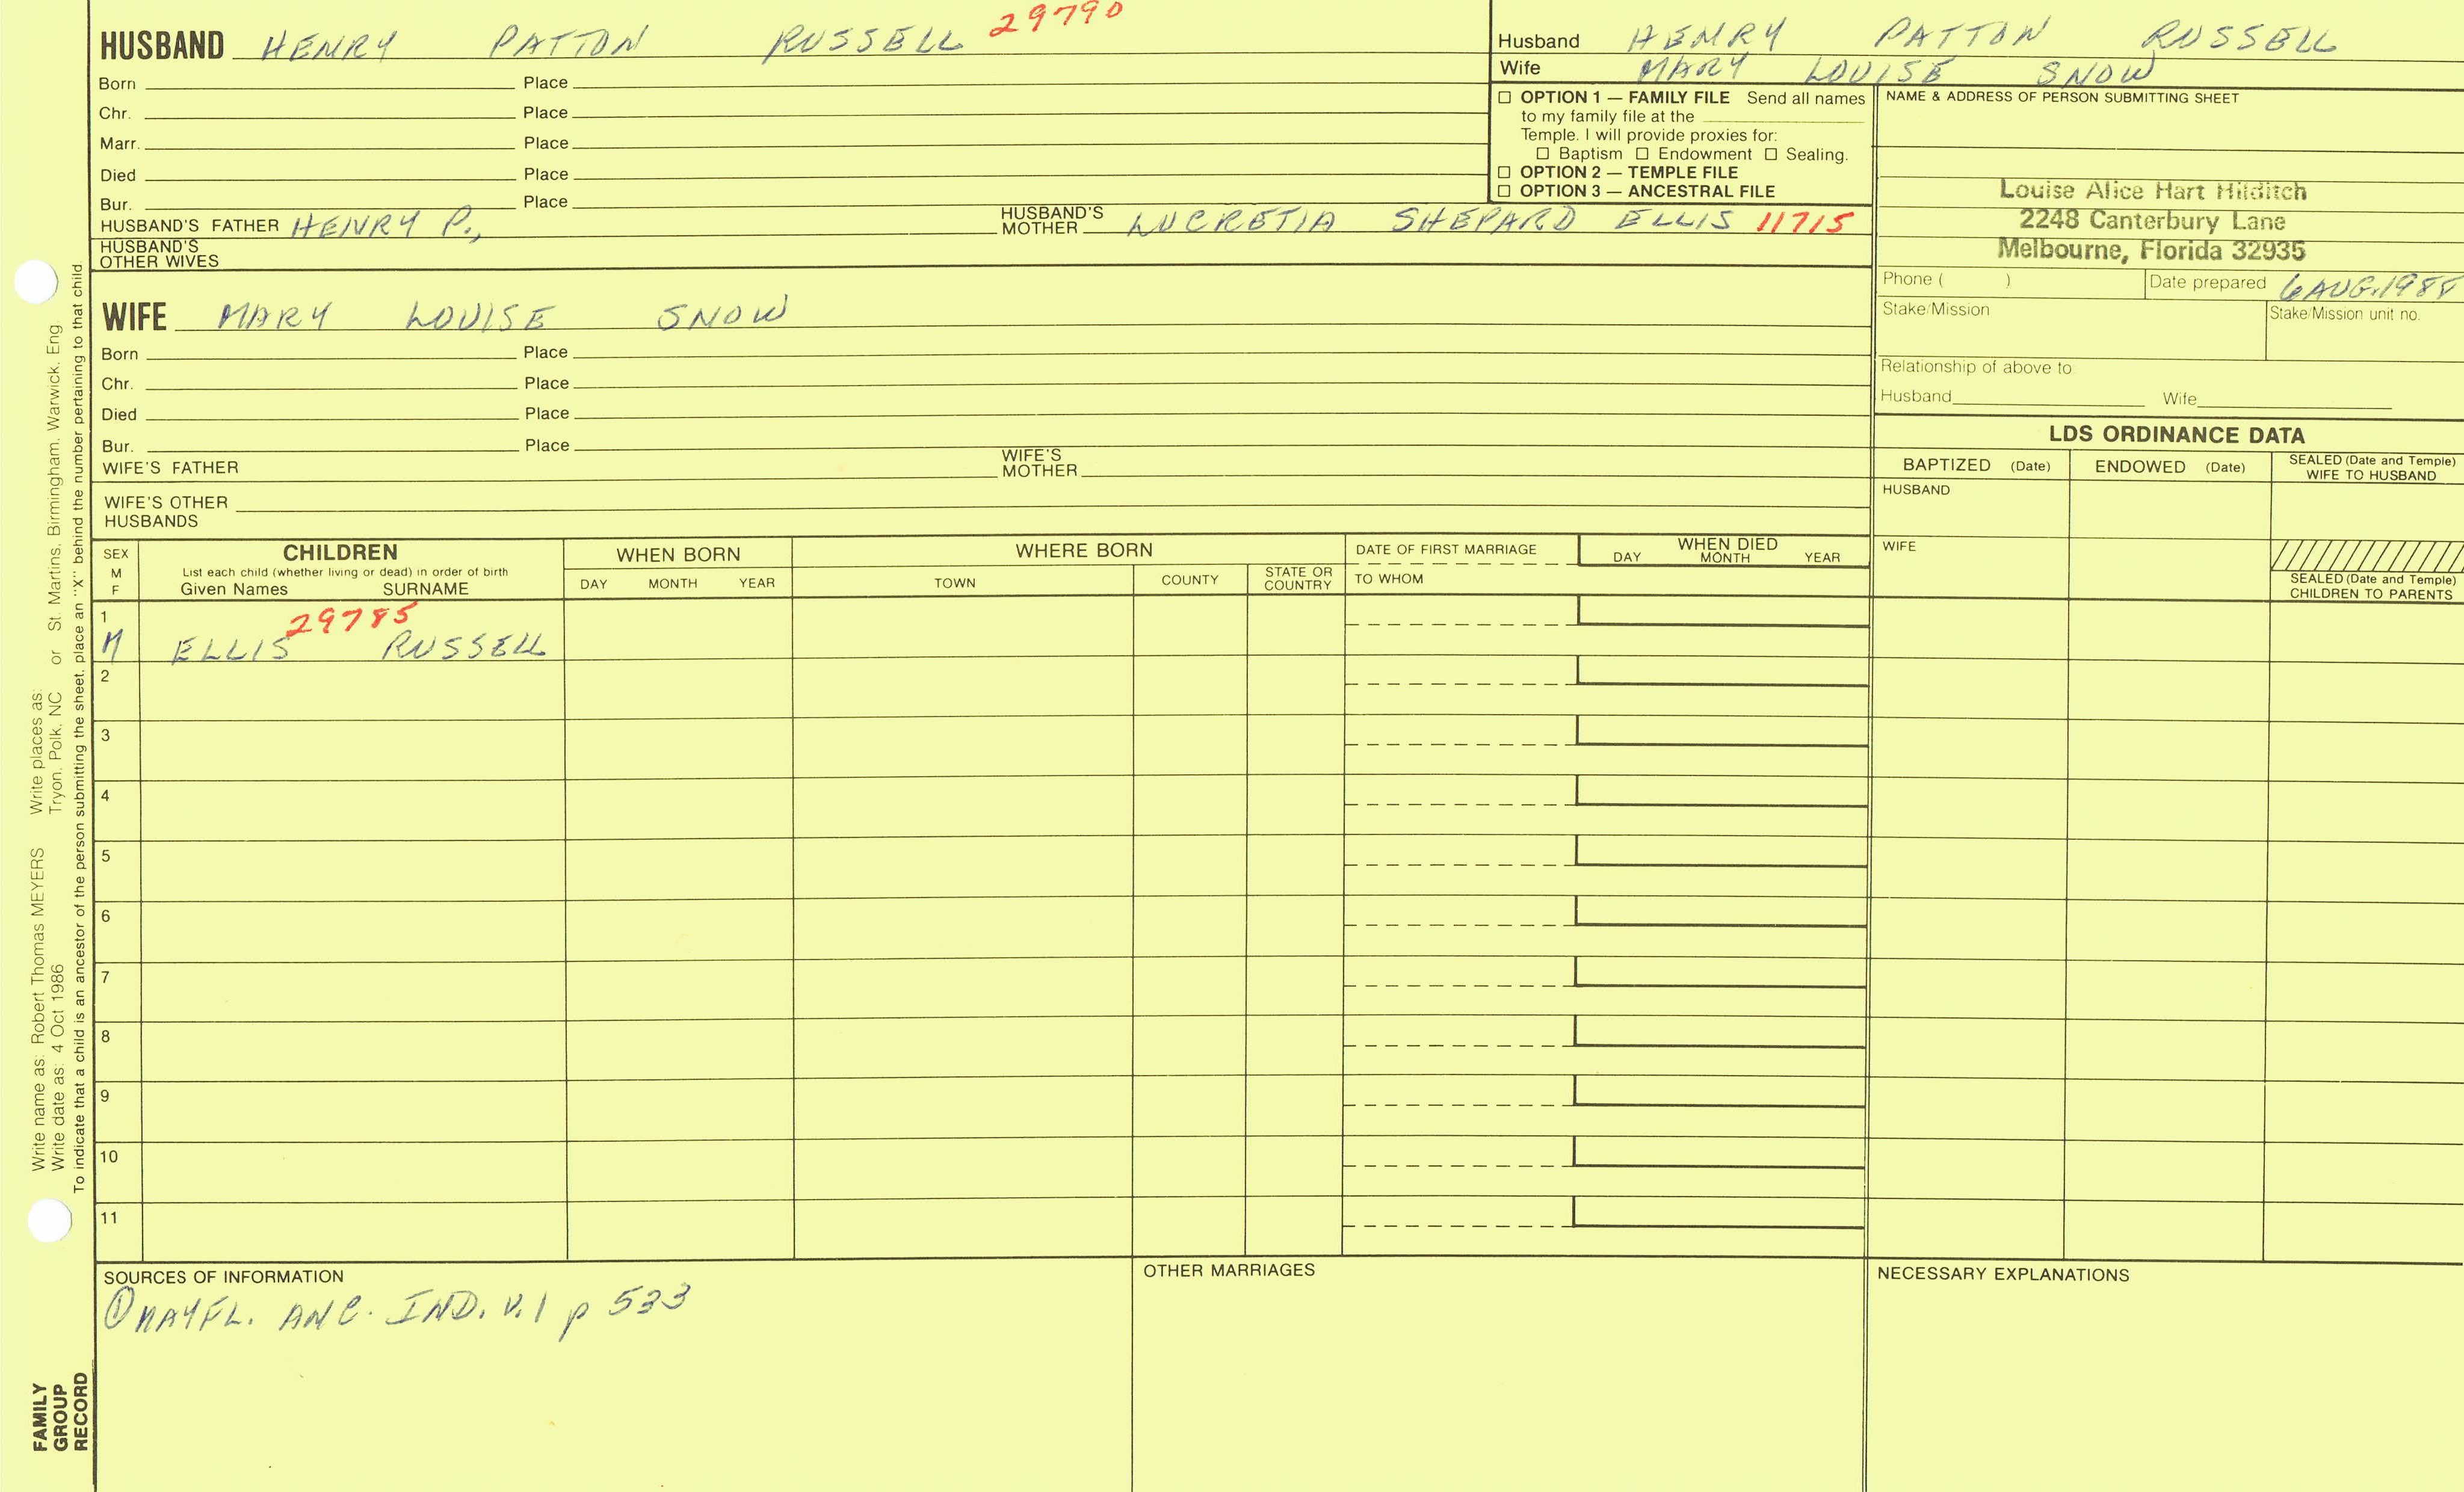 HUSBAND HENRY PATTON RUSSELL 29790
Born Place
Chr. Place
Marr. Place
Died Place
Bur. Place
HUSBAND'S FATHER HENRY P., HUSBAND'S MOTHER LUCRETIA SHEPARD ELLIS 11715
HUSBAND'S OTHER WIVES
WIFE MARY LOUISE SNOW
Born Place
Chr. Place
Died Place
Bur. Place
WIFE'S FATHER WIFE'S MOTHER
WIFE'S OTHER HUSBANDS
Husband HENRY PATTON RUSSELL
Wife MARY LOUISE SNOW
☐ OPTION 1 — FAMILY FILE Send all names
to my family file at the
Temple. I will provide proxies for:
☐ Baptism ☐ Endowment ☐ Sealing.
☐ OPTION 2 — TEMPLE FILE
☐ OPTION 3 — ANCESTRAL FILE
NAME & ADDRESS OF PERSON SUBMITTING SHEET
Louise Alice Hart Hilditch
2248 Canterbury Lane
Melbourne, Florida 32935
Phone ( ) Date prepared 6 AUG. 1988
Stake/Mission Stake/Mission unit no.
Relationship of above to
Husband Wife
LDS ORDINANCE DATA
BAPTIZED (Date) ENDOWED (Date) SEALED (Date and Temple) WIFE TO HUSBAND
HUSBAND
WIFE
SEALED (Date and Temple) CHILDREN TO PARENTS
SEX M F
CHILDREN
List each child (whether living or dead) in order of birth
Given Names SURNAME
WHEN BORN
DAY MONTH YEAR
WHERE BORN
TOWN COUNTY STATE OR COUNTRY
DATE OF FIRST MARRIAGE
TO WHOM
WHEN DIED
DAY MONTH YEAR
1 29785
M ELLIS RUSSELL
2
3
4
5
6
7
8
9
10
11
SOURCES OF INFORMATION
① MAYFL. ANC. IND. V.1 p 533
OTHER MARRIAGES
NECESSARY EXPLANATIONS
Write name as: Robert Thomas MEYERS Write places as:
Write date as: 4 Oct 1986 Tryon, Polk, NC or St. Martins, Birmingham, Warwick, Eng.
To indicate that a child is an ancestor of the person submitting the sheet, place an "X" behind the number pertaining to that child.
FAMILY
GROUP
RECORD